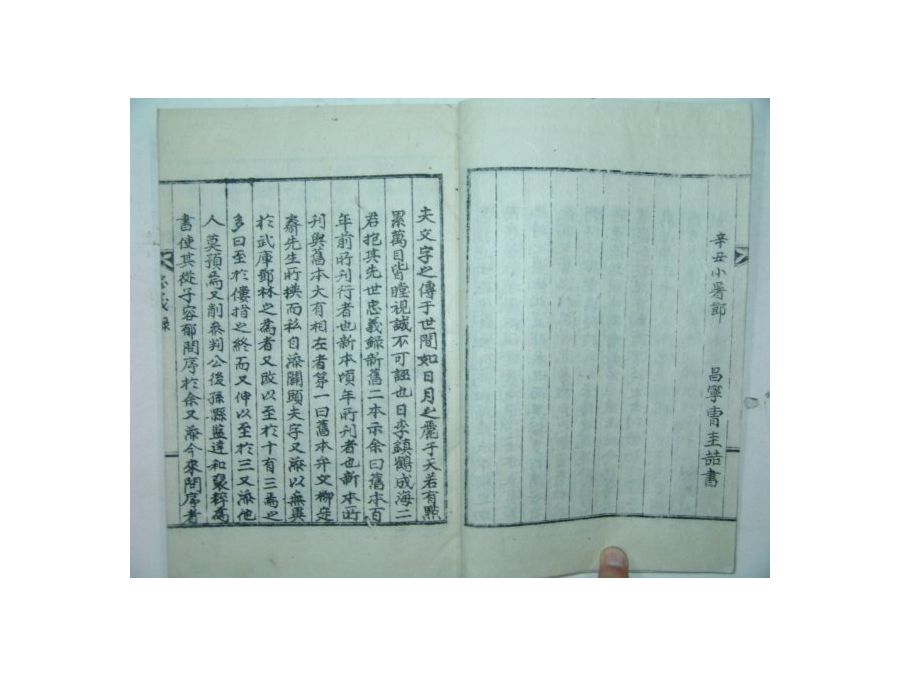 辛丑小暑節　昌寧曺圭喆書
夫文字之傳于世間如日月之麗乎天若有點
累萬目皆瞠視誠不可誣也日李鎮鶴成海二
君抱其先世忠義錄新舊二本示余曰舊本百
年前所刊行者也新本頃年所刊者也新本所
刊與舊本大有相左者第一曰舊本弁文柳定
齋先生所撰而私自添闕頭夫字又添以無異
於武庫鄧林之爲者又改以至於十有三焉之
多曰至於僂指之終而又伸以至於三又添他
人莫預焉又削參判公後孫縣監達和裒稡爲
書使其從子容郁問序於余又添今來問序者
忠義錄